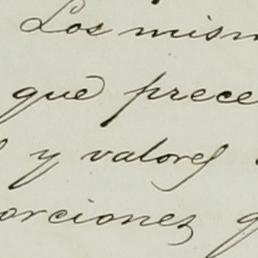 Los mism
que prece
y valores
orciones q